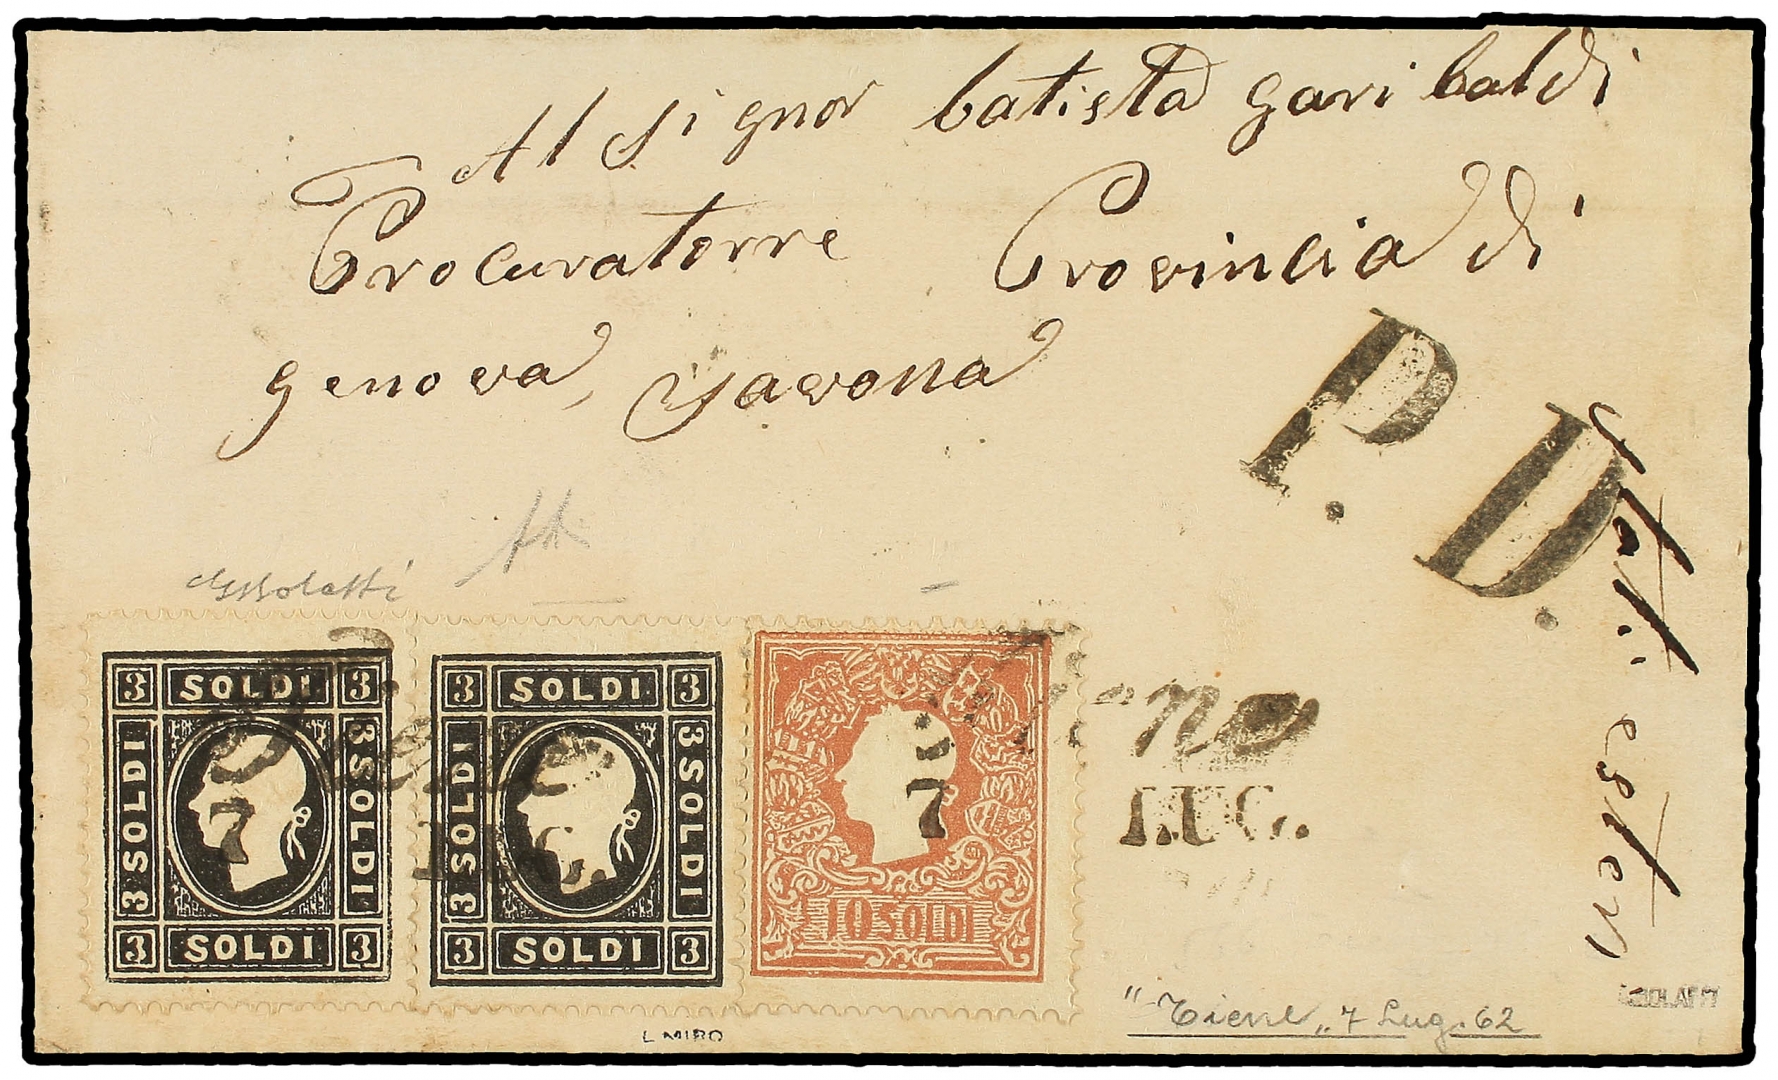 Al Signor batista garibaldi
Procuratorre Provincia di
genova, Savona
P.D.
Stati esteri
3 SOLDI 3
3 SOLDI
3 SOLDI
3 SOLDI 3
3 SOLDI 3
3 SOLDI
3 SOLDI
3 SOLDI 3
10 SOLDI
Tiene
7 LUG.
Tiene
7 LUG.
L MIRO
"Tiene„ 7 Lug. 62